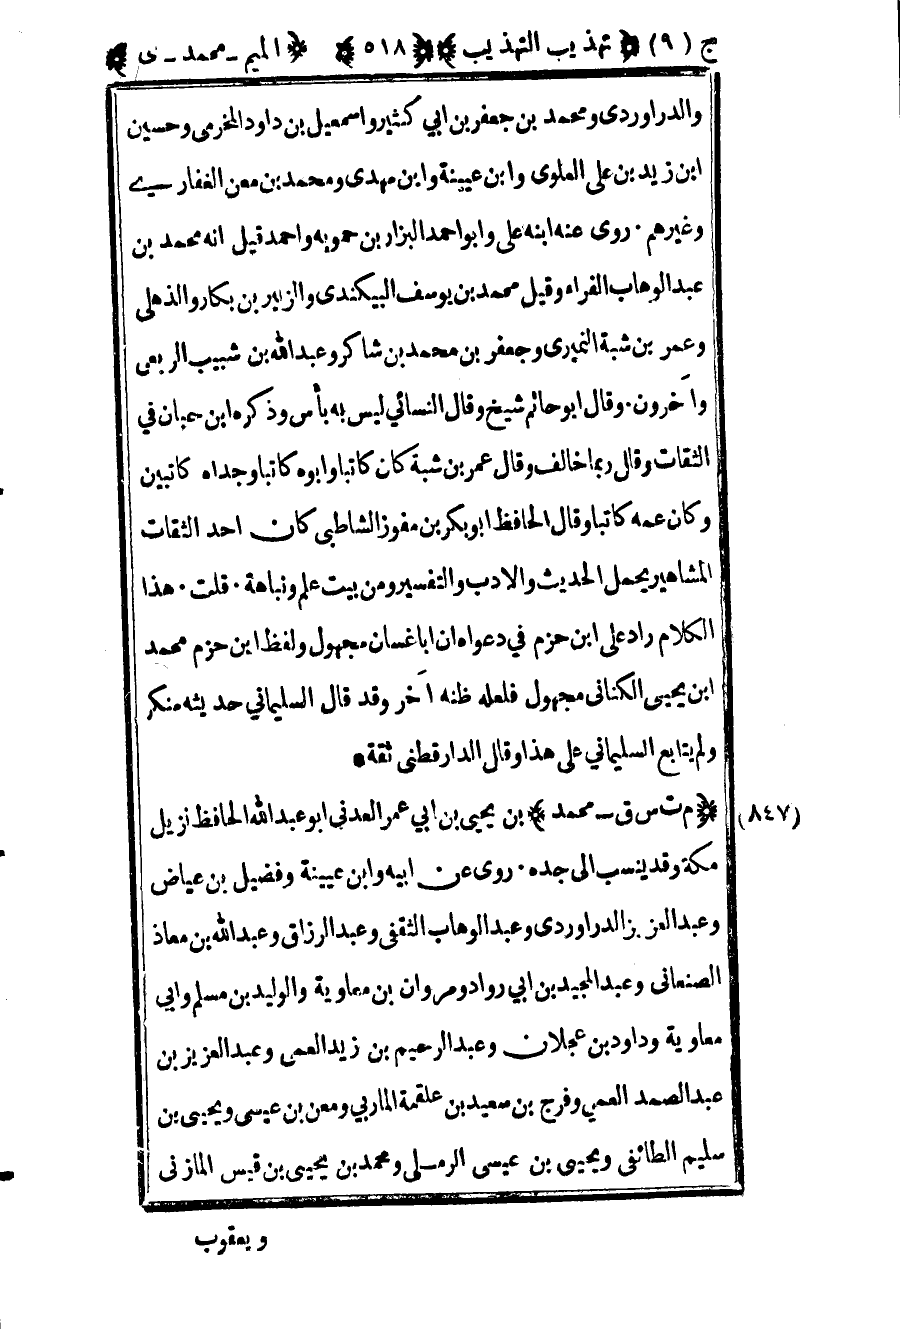 ج (٩) ﴿ تهذيب التهذيب ﴾ ﴿ ٥١٨ ﴾ ﴿ الميم ـ محمد ـ ى ﴾
والدراوردى ومحمد بن جعفر بن ابي كثير واسمعيل بن داود المخرمى وحسين
ابن زيد بن على العلوى وابن عيينة وابن مهدى ومحمد بن معن الغفارى
وغيرهم · روى عنه ابنه على وابو احمد البزار بن حمويه واحمد قيل انه محمد بن
عبد الوهاب الفراء وقيل محمد بن يوسف البيكندى والزبير بن بكار والذهلى
وعمر بن شبة النميرى وجعفر بن محمد بن شاكر وعبد الله بن شبيب الربعى
وآخرون · وقال ابو حاتم شيخ وقال النسائي ليس به بأس وذكره ابن حبان في
الثقات وقال ربما خالف وقال عمر بن شبة كان كاتبا وابوه كاتبا وجداه كاتبين
وكان عمه كاتبا وقال الحافظ ابو بكر بن مفوز الشاطبى كان احد الثقات
المشاهير يحمل الحديث والادب والتفسير ومن بيت علم ونباهة · قلت · هذا
الكلام راد على ابن حزم في دعواه ان ابا غسان مجهول ولفظ ابن حزم محمد
ابن يحيى الكنانى مجهول فلعله ظنه آخر وقد قال السليماني حديثه منكر
ولم يتابع السليماني على هذا وقال الدارقطنى ثقة •
﴿ م ت س ق ـ محمد ﴾ بن يحيى بن ابي عمر العدنى ابو عبد الله الحافظ نزيل (٨٤٧)
مكة وقد ينسب الى جده · روى عن ابيه وابن عيينة وفضيل بن عياض
وعبد العزيز الدراوردى وعبد الوهاب الثقفى وعبد الرزاق وعبد الله بن معاذ
الصنعانى وعبد المجيد بن ابي رواد ومروان بن معاوية والوليد بن مسلم وابي
معاوية وداود بن عجلان وعبد الرحيم بن زيد العمى وعبد العزيز بن
عبد الصمد العمي وفرج بن سعيد بن علقمة الماربي ومعن بن عيسى ويحيى بن
سليم الطائفى ويحيى بن عيسى الرملى ومحمد بن يحيى بن قيس المازنى
ويعقوب